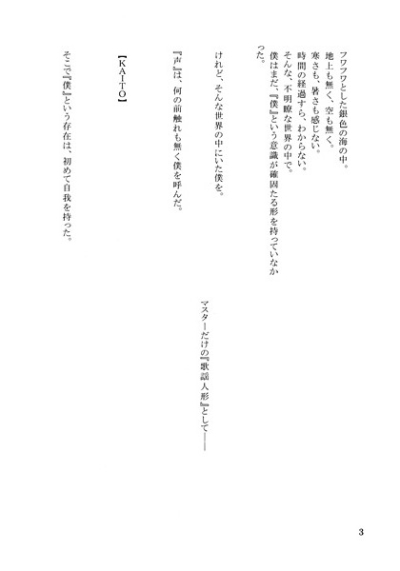 フワフワとした銀色の海の中。
地上も無く、空も無く。
寒さも、暑さも感じない。
時間の経過すら、わからない。
そんな、不明瞭な世界の中で。
僕はまだ、『僕』という意識が確固たる形を持っていなか
った。
けれど、そんな世界の中にいた僕を。
『声』は、何の前触れも無く僕を呼んだ。
【KAITO】
そこで『僕』という存在は、初めて自我を持った。
マスターだけの『歌謡人形』として――
3